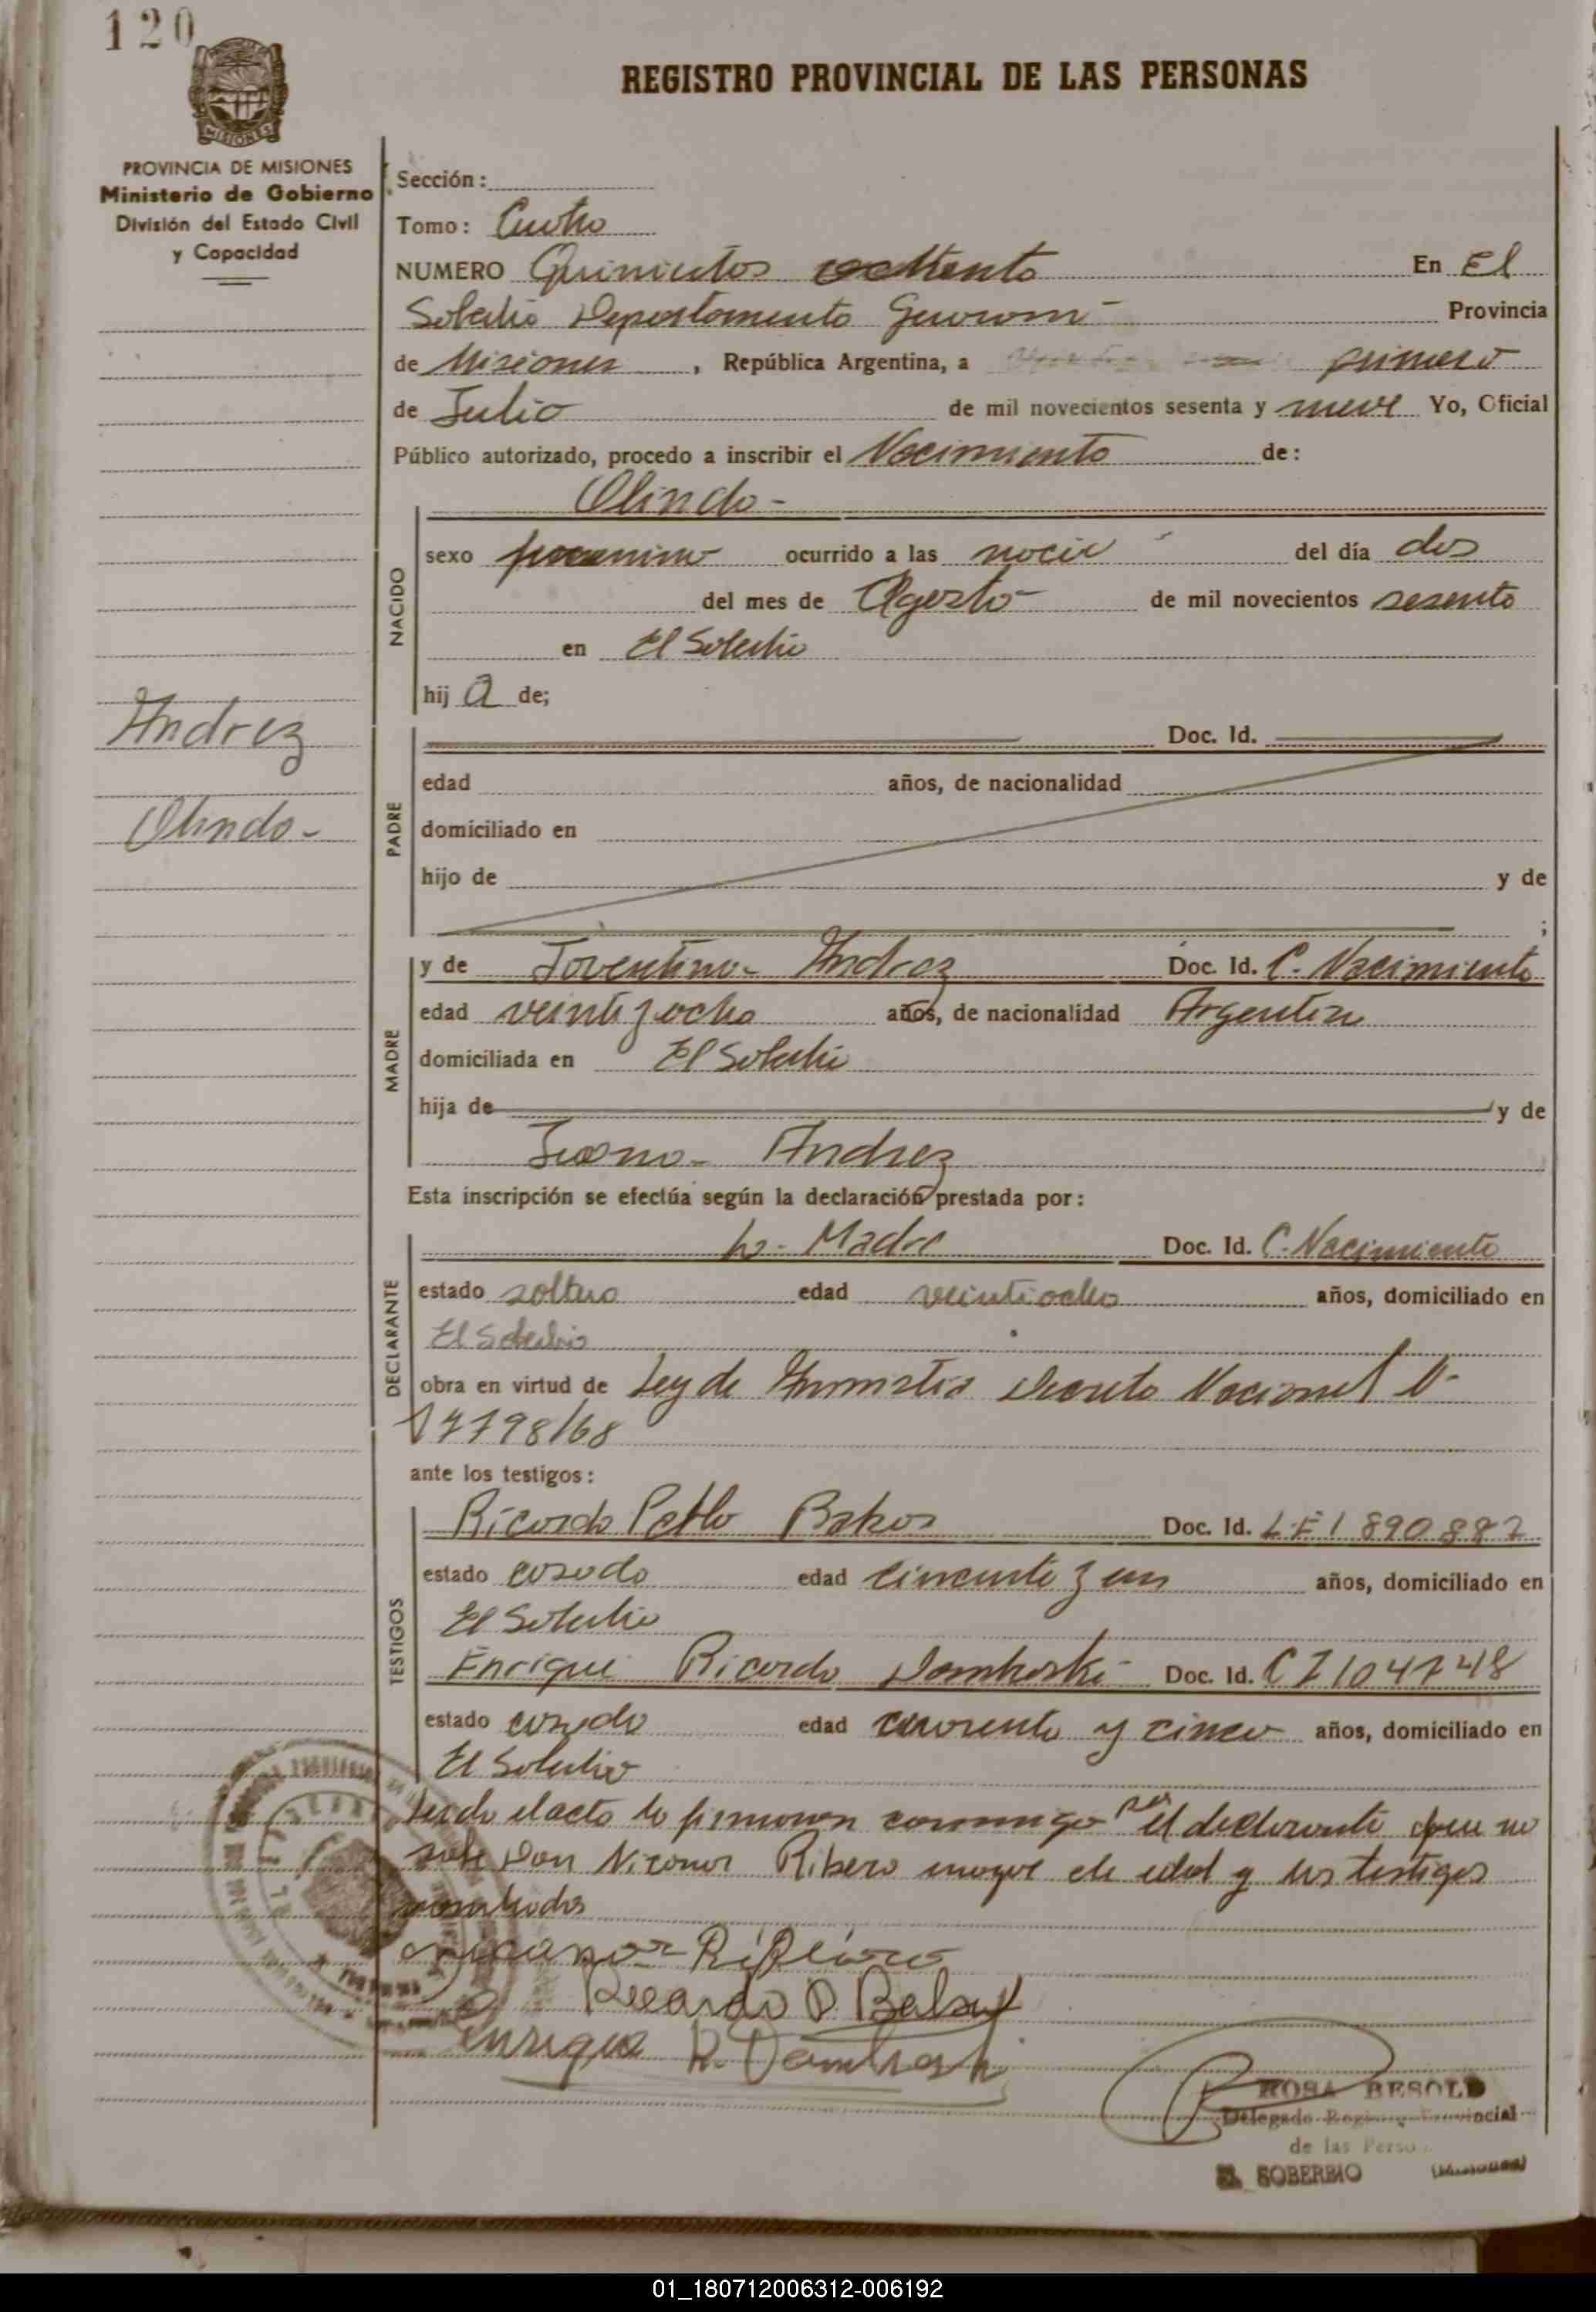 120
REGISTRO PROVINCIAL DE LAS PERSONAS
MISIONES
PROVINCIA DE MISIONES
Ministerio de Gobierno
División del Estado Civil
y Capacidad
Sección:
Tomo: Cuatro
NUMERO Quinientos ochenta En El
Soberbio Departamento Guarani - Provincia
de Misiones, República Argentina, a primero
de Julio de mil novecientos sesenta y nueve Yo, Oficial
Público autorizado, procedo a inscribir el Nacimiento de:
Olinda -
NACIDO
sexo femenino ocurrido a las del día dos
del mes de Agosto - de mil novecientos sesenta
en El Soberbio
hij a de;
Andrez
Olinda -
PADRE
Doc. Id.
edad años, de nacionalidad
domiciliado en
hijo de y de
;
MADRE
y de Joventina - Andrez Doc. Id. C. Nacimiento
edad veinti y ocho años, de nacionalidad Argentina
domiciliada en El Soberbio
hija de y de
Juana - Andrez
Esta inscripción se efectúa según la declaración prestada por:
DECLARANTE
La - Madre Doc. Id. C. Nacimiento
estado soltera edad veintiocho años, domiciliado en
El Soberbio
obra en virtud de Ley de Amnistia Decreto Nacional N-
17798/68
ante los testigos:
TESTIGOS
Ricardo Pablo Doc. Id. L E 1 890 882
estado casado edad cincuenta y un años, domiciliado en
El Soberbio
Enrique Ricardo Domboski - Doc. Id. C I 1041748
estado casado edad cuarenta y cinco años, domiciliado en
El Soberbio
Leida el acta la firmaron conmigo por el declarante que no
sabe Don Nicanor Ribero mayor de edad y los testigos
nombrados
nicanor Ribeiro
Ricardo P
Enrique R.
ROSA BESOLD
Delegado Provincial
de las Perso
EL SOBERBIO (Misiones)
01_180712006312-006192